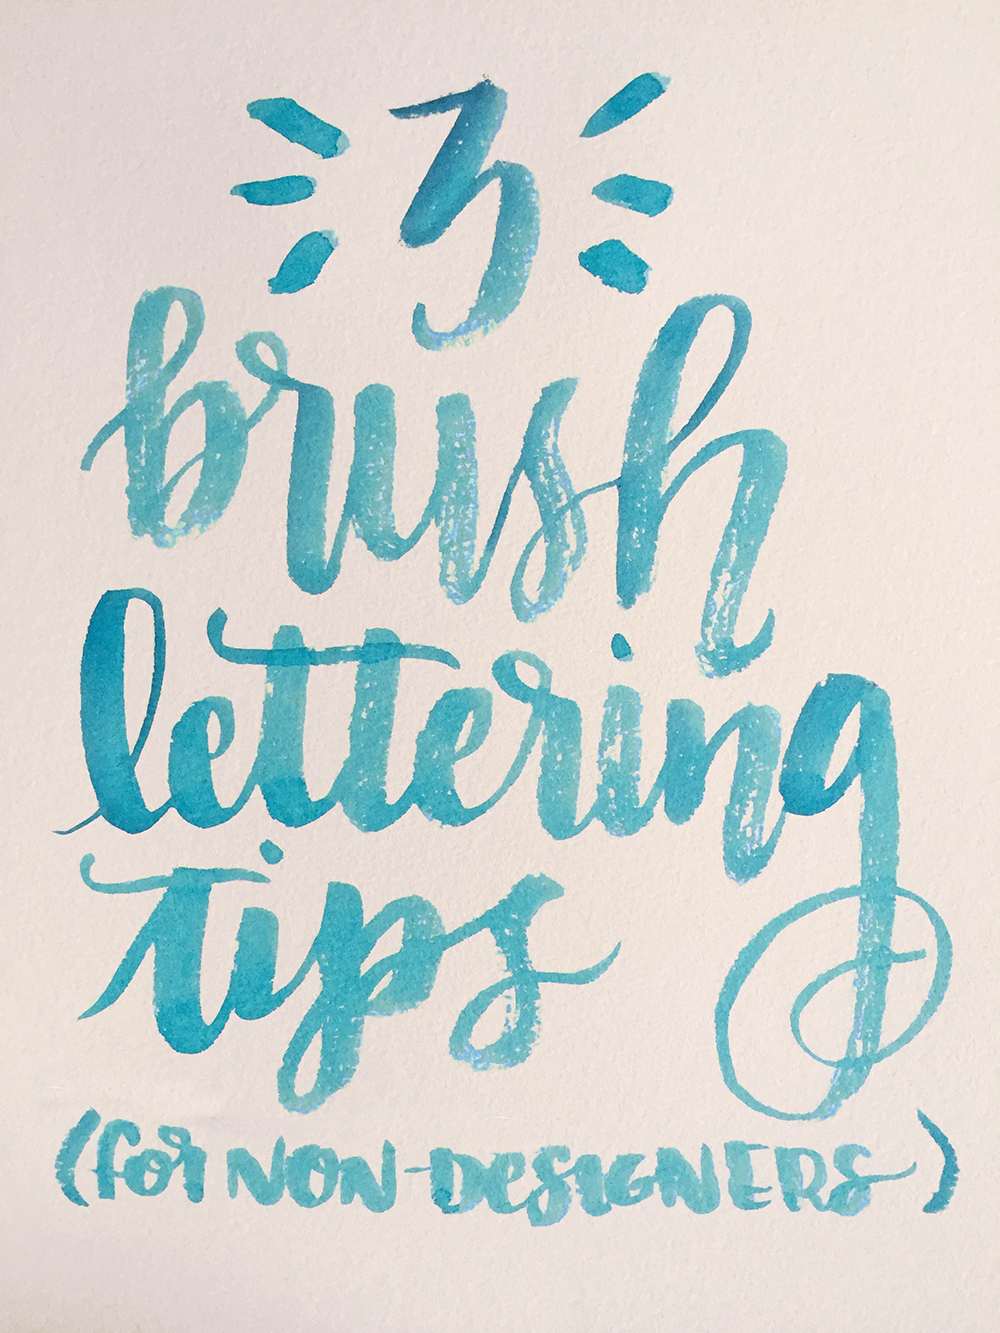 3
brush
lettering
tips
(for NON-DeSIGNERS)